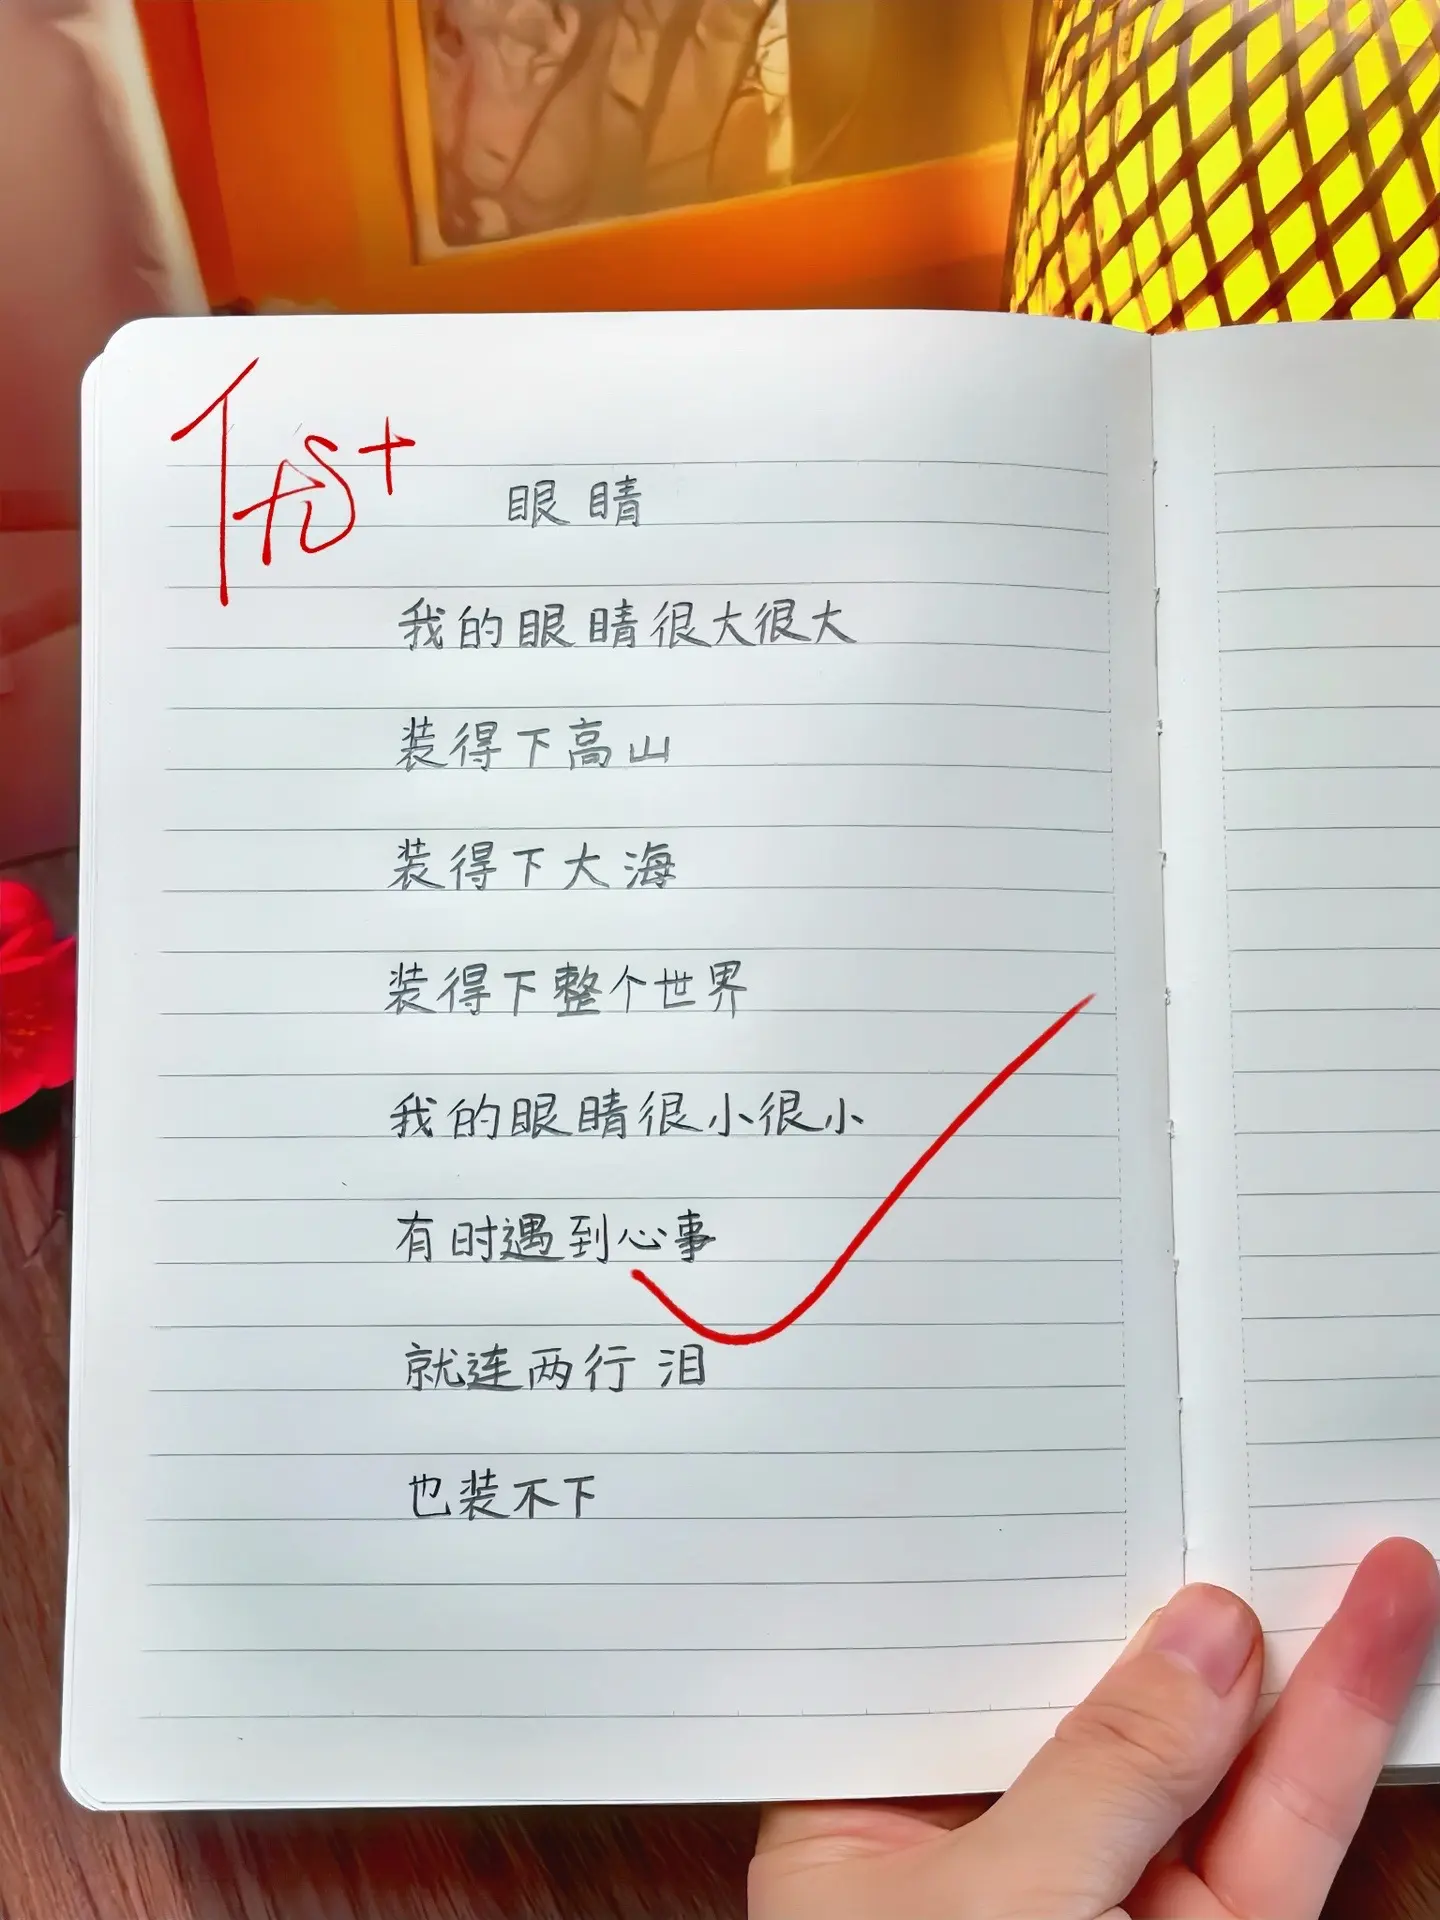 优+
眼睛
我的眼睛很大很大
装得下高山
装得下大海
装得下整个世界
我的眼睛很小很小
有时遇到心事
就连两行泪
也装不下